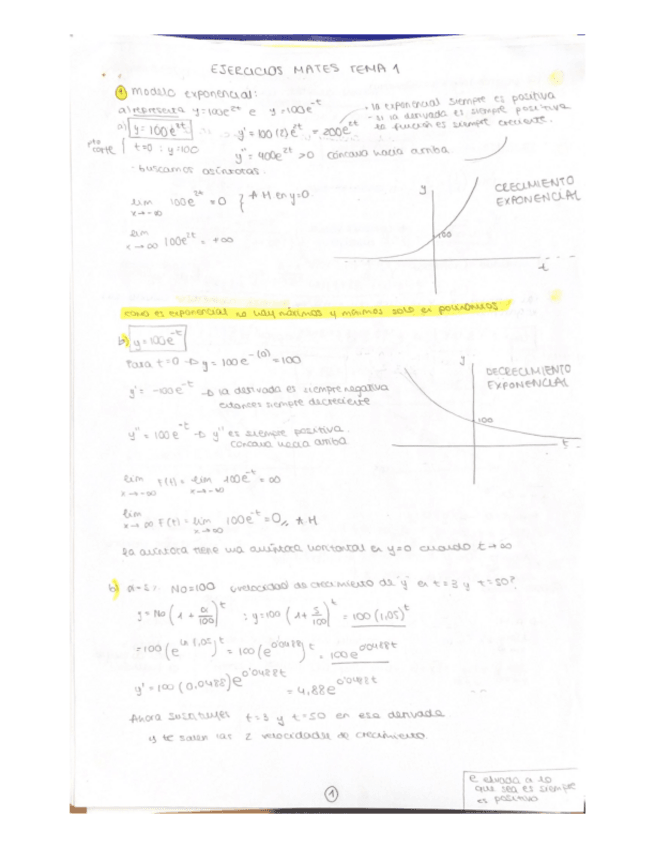 EJERCICIOS MATES TEMA 1
1 modelo exponencial:
a) representa y=100e^2t e y=100e^-t
· la exponencial siempre es positiva
- si la derivada es siempre positiva
la función es siempre creciente.
a) y=100e^2t
y'=100(2)e^2t = 200e^2t
pto corte { t=0 : y=100
y''=400e^2t >0 cóncava hacia arriba.
- buscamos asíntotas.
lim x→-∞ 100e^2t =0 } A H en y=0
lim x→∞ 100e^2t = +∞
y
100
t
CRECIMIENTO
EXPONENCIAL
como es exponencial no hay máximos y mínimos solo en polinomios
b) y=100e^-t
Para t=0 → y=100e^-(0)=100
y'=-100e^-t → la derivada es siempre negativa
entonces siempre decreciente
y''=100e^-t → y'' es siempre positiva.
cóncava hacia arriba.
y
100
t
DECRECIMIENTO
EXPONENCIAL
lim x→-∞ f(t)= lim x→-∞ 100e^-t =∞
lim x→∞ F(t)= lim x→∞ 100e^-t =0, A H
la tiene una asíntota horizontal en y=0 cuando t→∞
b) No=100 velocidad de crecimiento de 'y' en t=3 y t=50?
y=No(1+α/100)^t : y=100(1+5/100)^t = 100(1,05)^t
=100(e^ln 1,05)^t = 100(e^0'0488)^t = 100e^0'0488t
y'=100(0,0488)e^0'0488t = 4,88e^0'0488t
Ahora sustituyes t=3 y t=50 en esa derivada
y te salen las 2 velocidades de crecimiento.
1
e elevado a lo
que sea es siempre
es positivo